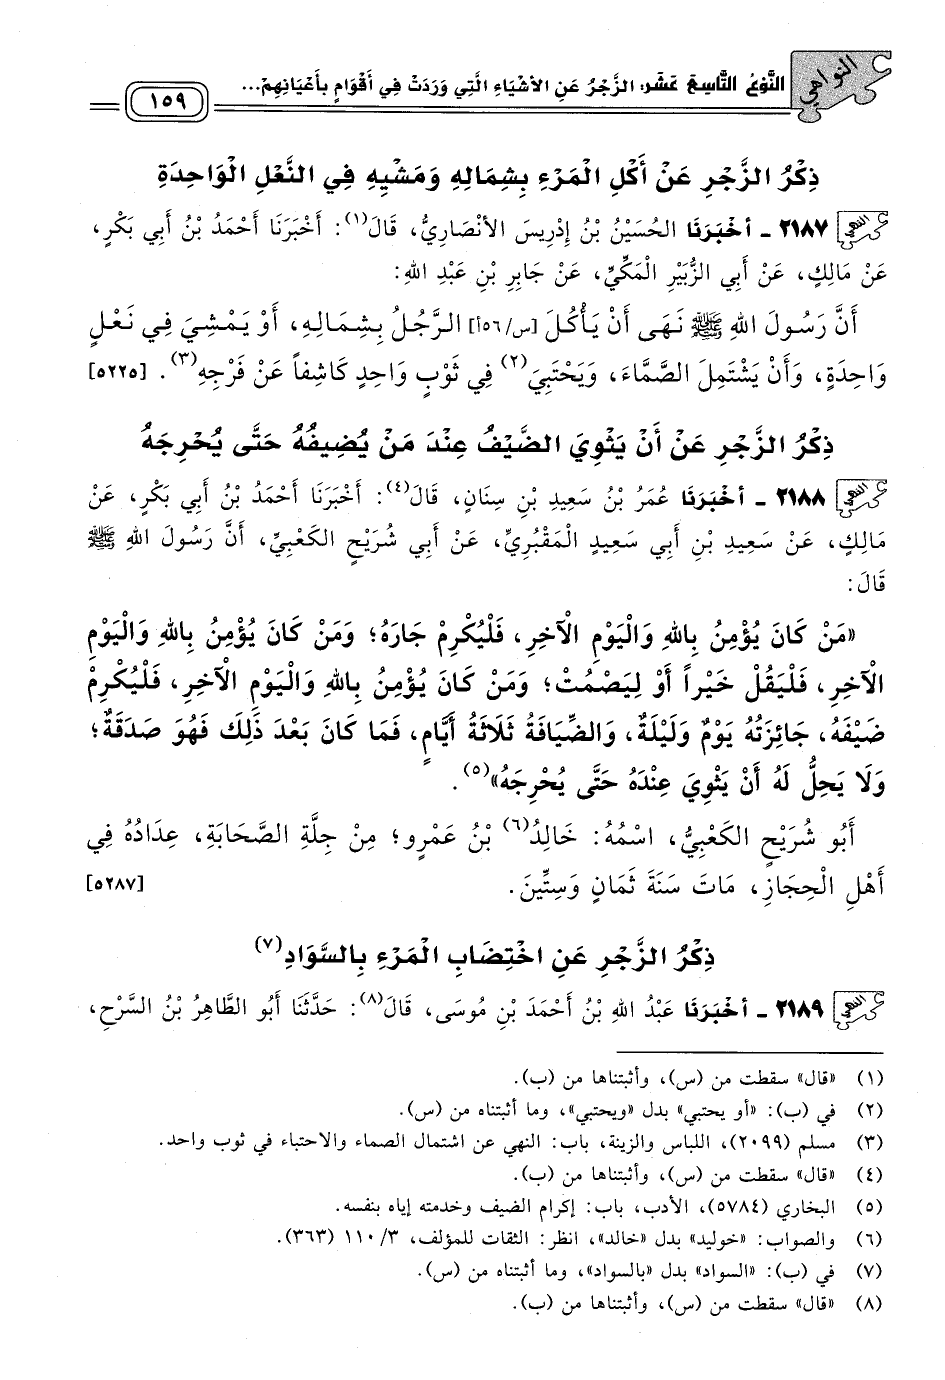 النواهي
النَّوْعُ التَّاسِعَ عَشَرَ: الزَّجْرُ عَنِ الأَشْيَاءِ الَّتِي وَرَدَتْ فِي أَقْوَامٍ بِأَعْيَانِهِمْ...
١٥٩
ذِكْرُ الزَّجْرِ عَنْ أَكْلِ الْمَرْءِ بِشِمَالِهِ وَمَشْيِهِ فِي النَّعْلِ الْوَاحِدَةِ
٢١٨٧ - أَخْبَرَنَا الحُسَيْنُ بْنُ إِدْرِيسَ الأَنْصَارِيُّ، قَالَ(١): أَخْبَرَنَا أَحْمَدُ بْنُ أَبِي بَكْرٍ،
عَنْ مَالِكٍ، عَنْ أَبِي الزُّبَيْرِ الْمَكِّيِّ، عَنْ جَابِرِ بْنِ عَبْدِ اللهِ:
أَنَّ رَسُولَ اللهِ ﷺ نَهَى أَنْ يَأْكُلَ [س/٥٦أ] الرَّجُلُ بِشِمَالِهِ، أَوْ يَمْشِيَ فِي نَعْلٍ
وَاحِدَةٍ، وَأَنْ يَشْتَمِلَ الصَّمَّاءَ، وَيَحْتَبِيَ(٢) فِي ثَوْبٍ وَاحِدٍ كَاشِفاً عَنْ فَرْجِهِ(٣). [٥٢٢٥]
ذِكْرُ الزَّجْرِ عَنْ أَنْ يَثْوِيَ الضَّيْفُ عِنْدَ مَنْ يُضِيفُهُ حَتَّى يُحْرِجَهُ
٢١٨٨ - أَخْبَرَنَا عُمَرُ بْنُ سَعِيدِ بْنِ سِنَانٍ، قَالَ(٤): أَخْبَرَنَا أَحْمَدُ بْنُ أَبِي بَكْرٍ، عَنْ
مَالِكٍ، عَنْ سَعِيدِ بْنِ أَبِي سَعِيدٍ الْمَقْبُرِيِّ، عَنْ أَبِي شُرَيْحٍ الكَعْبِيِّ، أَنَّ رَسُولَ اللهِ ﷺ
قَالَ:
«مَنْ كَانَ يُؤْمِنُ بِاللهِ وَالْيَوْمِ الْآخِرِ، فَلْيُكْرِمْ جَارَهُ؛ وَمَنْ كَانَ يُؤْمِنُ بِاللهِ وَالْيَوْمِ
الْآخِرِ، فَلْيَقُلْ خَيْراً أَوْ لِيَصْمُتْ؛ وَمَنْ كَانَ يُؤْمِنُ بِاللهِ وَالْيَوْمِ الْآخِرِ، فَلْيُكْرِمْ
ضَيْفَهُ، جَائِزَتُهُ يَوْمٌ وَلَيْلَةٌ، وَالضِّيَافَةُ ثَلَاثَةُ أَيَّامٍ، فَمَا كَانَ بَعْدَ ذَلِكَ فَهُوَ صَدَقَةٌ؛
وَلَا يَحِلُّ لَهُ أَنْ يَثْوِيَ عِنْدَهُ حَتَّى يُحْرِجَهُ»(٥).
أَبُو شُرَيْحٍ الكَعْبِيُّ، اسْمُهُ: خَالِدُ(٦) بْنُ عَمْرٍو؛ مِنْ جِلَّةِ الصَّحَابَةِ، عِدَادُهُ فِي
أَهْلِ الْحِجَازِ، مَاتَ سَنَةَ ثَمَانٍ وَسِتِّينَ. [٥٢٨٧]
ذِكْرُ الزَّجْرِ عَنِ اخْتِضَابِ الْمَرْءِ بِالسَّوَادِ(٧)
٢١٨٩ - أَخْبَرَنَا عَبْدُ اللهِ بْنُ أَحْمَدَ بْنِ مُوسَى، قَالَ(٨): حَدَّثَنَا أَبُو الطَّاهِرِ بْنُ السَّرْحِ،
(١) «قال» سقطت من (س)، وأثبتناها من (ب).
(٢) في (ب): «أو يحتبي» بدل «ويحتبي»، وما أثبتناه من (س).
(٣) مسلم (٢٠٩٩)، اللباس والزينة، باب: النهي عن اشتمال الصماء والاحتباء في ثوب واحد.
(٤) «قال» سقطت من (س)، وأثبتناها من (ب).
(٥) البخاري (٥٧٨٤)، الأدب، باب: إكرام الضيف وخدمته إياه بنفسه.
(٦) والصواب: «خوليد» بدل «خالد»، انظر: الثقات للمؤلف، ٣/ ١١٠ (٣٦٣).
(٧) في (ب): «السواد» بدل «بالسواد»، وما أثبتناه من (س).
(٨) «قال» سقطت من (س)، وأثبتناها من (ب).